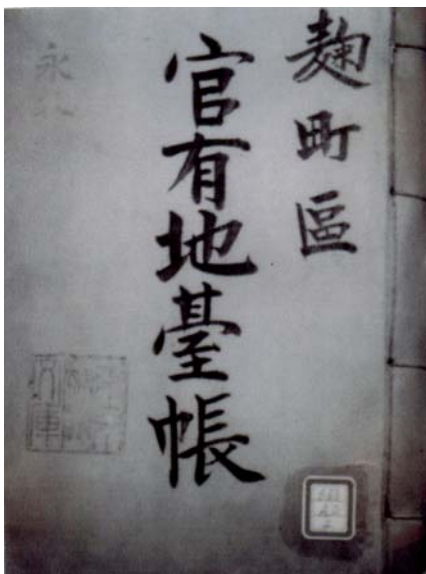 麹町區
官有地臺帳
永